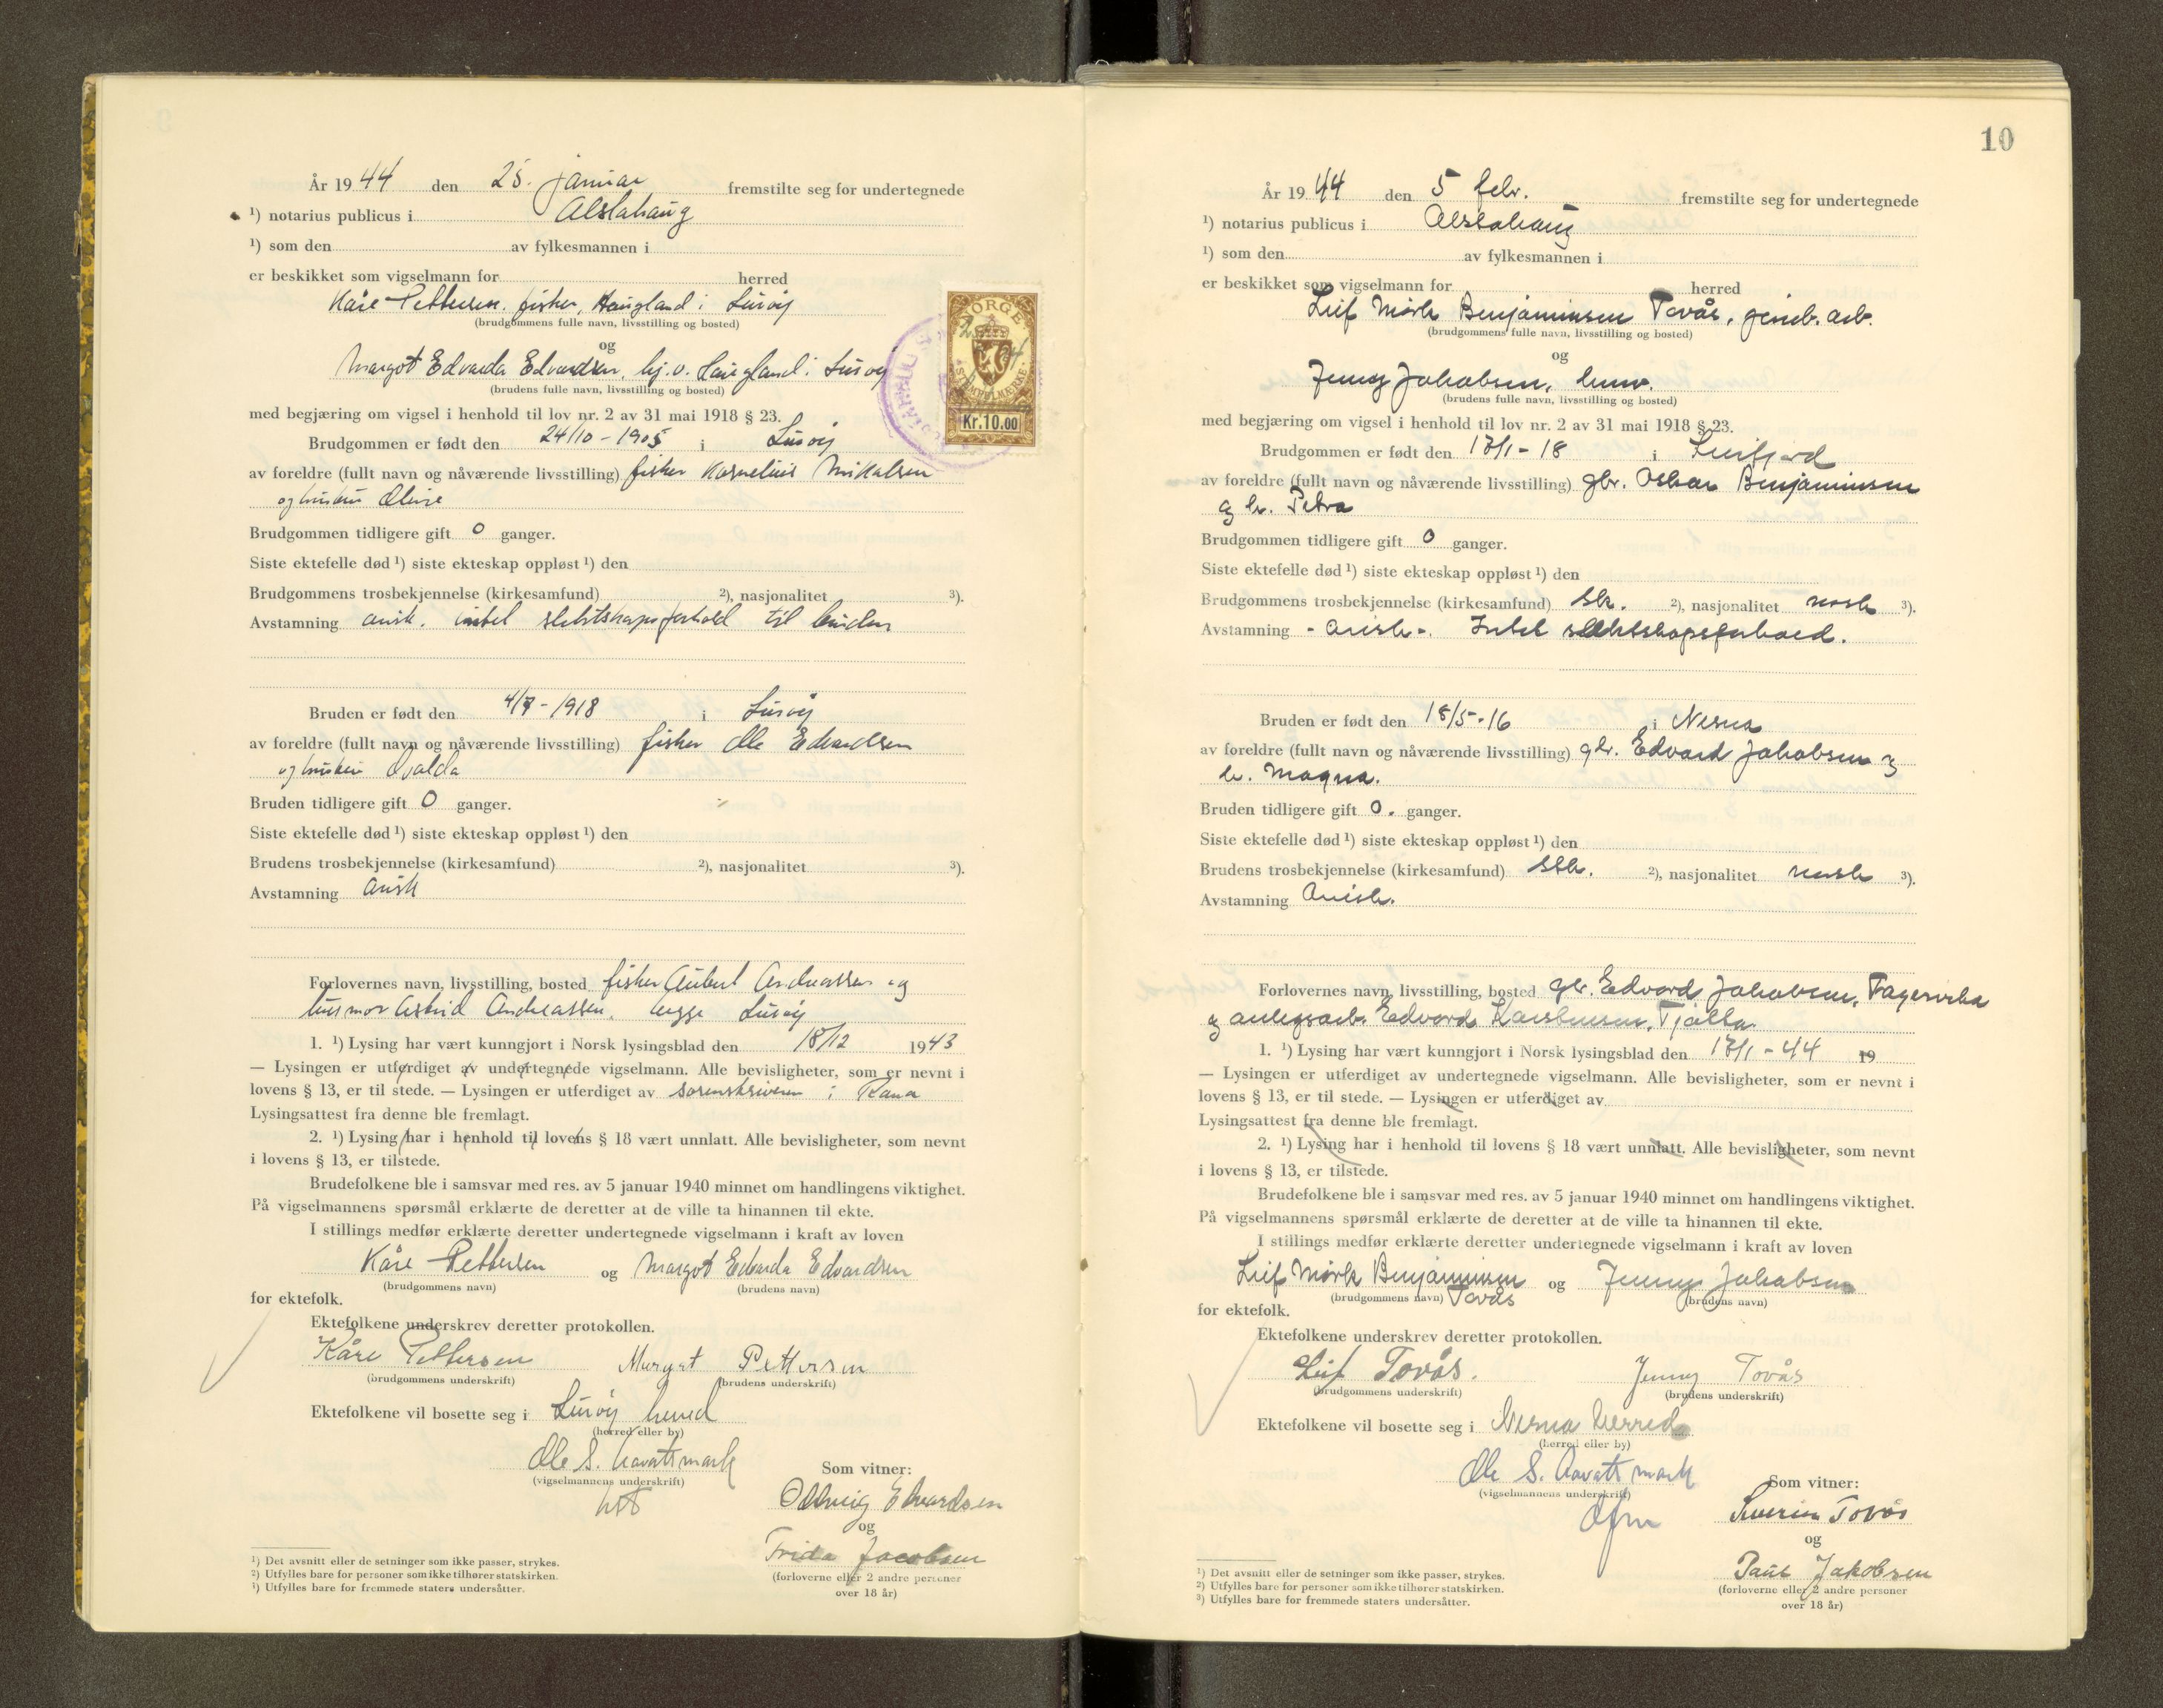 År 1944 den 25. januar fremstilte seg for undertegnede
¹) notarius publicus i Alstahaug
¹) som den av fylkesmannen i
er beskikket som vigselmann for herred
Kåre Pettersen, fisker, Haugland i Lurøy
(brudgommens fulle navn, livsstilling og bosted)
og
Margot Edvarda Edvardsen, hj.v. Haugland i Lurøy
(brudens fulle navn, livsstilling og bosted)
NORGE
STEMPELMERKE
Kr.10.00
med begjæring om vigsel i henhold til lov nr. 2 av 31 mai 1918 § 23.
Brudgommen er født den 24/10-1905 i Lurøy
av foreldre (fullt navn og nåværende livsstilling) fisker Kornelius Mikalsen
og hustru Oline
Brudgommen tidligere gift 0 ganger.
Siste ektefelle død ¹) siste ekteskap oppløst ¹) den
Brudgommens trosbekjennelse (kirkesamfund) ²), nasjonalitet ³).
Avstamning arisk. intet slektskapsforhold til bruden
Bruden er født den 4/7-1918 i Lurøy
av foreldre (fullt navn og nåværende livsstilling) fisker Ole Edvardsen
og hustru Ovalda
Bruden tidligere gift 0 ganger.
Siste ektefelle død ¹) siste ekteskap oppløst ¹) den
Brudens trosbekjennelse (kirkesamfund) ²), nasjonalitet ³).
Avstamning arisk
Forlovernes navn, livsstilling, bosted fisker Aubert Andreassen og
husmor Astrid Andreassen, begge Lurøy
1. ¹) Lysing har vært kunngjort i Norsk lysingsblad den 18/12 1943
— Lysingen er utferdiget av undertegnede vigselmann. Alle bevisligheter, som er nevnt i
lovens § 13, er til stede. — Lysingen er utferdiget av sorenskriveren i Rana
Lysingsattest fra denne ble fremlagt.
2. ¹) Lysing har i henhold til lovens § 18 vært unnlatt. Alle bevisligheter, som nevnt
i lovens § 13, er tilstede.
Brudefolkene ble i samsvar med res. av 5 januar 1940 minnet om handlingens viktighet.
På vigselmannens spørsmål erklærte de deretter at de ville ta hinannen til ekte.
I stillings medfør erklærte deretter undertegnede vigselmann i kraft av loven
Kåre Pettersen og Margot Edvarda Edvardsen
(brudgommens navn) (brudens navn)
for ektefolk.
Ektefolkene underskrev deretter protokollen.
Kåre Pettersen Margot Pettersen
(brudgommens underskrift) (brudens underskrift)
Ektefolkene vil bosette seg i Lurøy herred
(herred eller by)
Ole S. Aavatsmark
(vigselmannens underskrift)
Som vitner:
Edvardsen
og
Frida Jacobsen
(forloverne eller 2 andre personer
over 18 år)
¹) Det avsnitt eller de setninger som ikke passer, strykes.
²) Utfylles bare for personer som ikke tilhører statskirken.
³) Utfylles bare for fremmede staters undersåtter.
10
År 1944 den 5 febr. fremstilte seg for undertegnede
¹) notarius publicus i Alstahaug
¹) som den av fylkesmannen i
er beskikket som vigselmann for herred
Leif Mørk Benjaminsen Tovås, grub. arb.
(brudgommens fulle navn, livsstilling og bosted)
og
Jenny Jakobsen, husv.
(brudens fulle navn, livsstilling og bosted)
med begjæring om vigsel i henhold til lov nr. 2 av 31 mai 1918 § 23.
Brudgommen er født den 17/1-18 i Leirfjord
av foreldre (fullt navn og nåværende livsstilling) gbr. Oskar Benjaminsen
og h. Petra
Brudgommen tidligere gift 0 ganger.
Siste ektefelle død ¹) siste ekteskap oppløst ¹) den
Brudgommens trosbekjennelse (kirkesamfund) stk. ²), nasjonalitet norsk ³).
Avstamning - arisk -. Intet slektskapsforhold.
Bruden er født den 18/5-16 i Nesna
av foreldre (fullt navn og nåværende livsstilling) gbr. Edvard Jakobsen og
h. Magna.
Bruden tidligere gift 0. ganger.
Siste ektefelle død ¹) siste ekteskap oppløst ¹) den
Brudens trosbekjennelse (kirkesamfund) stk. ²), nasjonalitet norsk ³).
Avstamning Arisk.
Forlovernes navn, livsstilling, bosted gbr. Edvard Jakobsen, Fagervika
og anlegsarb. Edvard Karstensen, Tjøtta
1. ¹) Lysing har vært kunngjort i Norsk lysingsblad den 17/1-44 19
— Lysingen er utferdiget av undertegnede vigselmann. Alle bevisligheter, som er nevnt i
lovens § 13, er til stede. — Lysingen er utferdiget av
Lysingsattest fra denne ble fremlagt.
2. ¹) Lysing har i henhold til lovens § 18 vært unnlatt. Alle bevisligheter, som nevnt
i lovens § 13, er tilstede.
Brudefolkene ble i samsvar med res. av 5 januar 1940 minnet om handlingens viktighet.
På vigselmannens spørsmål erklærte de deretter at de ville ta hinannen til ekte.
I stillings medfør erklærte deretter undertegnede vigselmann i kraft av loven
Leif Mørk Benjaminsen og Jenny Jakobsen
(brudgommens navn) Tovås (brudens navn)
for ektefolk.
Ektefolkene underskrev deretter protokollen.
Leif Tovås. Jenny Tovås
(brudgommens underskrift) (brudens underskrift)
Ektefolkene vil bosette seg i Nesna herred
(herred eller by)
Ole S. Aavatsmark
(vigselmannens underskrift)
Som vitner:
Severin Tovås
og
Paul Jakobsen
(forloverne eller 2 andre personer
over 18 år)
¹) Det avsnitt eller de setninger som ikke passer, strykes.
²) Utfylles bare for personer som ikke tilhører statskirken.
³) Utfylles bare for fremmede staters undersåtter.